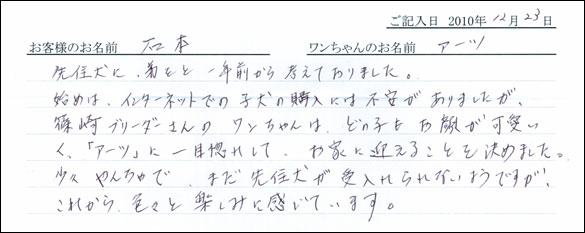 ご記入日 2010年 12月 23日
お客様のお名前 石本 ワンちゃんのお名前 アーツ
先住犬に、弟をと一年前から考えておりました。
始めは、インターネットでの子犬の購入には不安がありましたが、
篠崎ブリーダーさんの ワンちゃんは、どの子も お顔が可愛い
く、「アーツ」に一目惚れして、お家に迎えることを決めました。
少々 やんちゃで、まだ先住犬が受入れられないようですが、
これから、色々と楽しみに感じています。